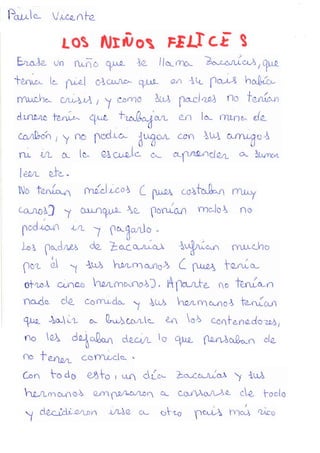 Paula Vicente
LOS NIÑOS FELICES
Erase un niño que se llama Zacarías, que
tenía la piel oscura que en su país había
mucha crisis, y como sus padres no tenían
dinero tenía que trabajar en la mina de
carbón, y no podia jugar con sus amigos
ni ir a la escuela a aprender a sumar
leer etc.
No tenían médicos ( pues costaban muy
caros) y aunque se ponían malos no
podian ir y pagarlo.
Los padres de Zacarias sufrían mucho
por él y sus hermanos ( pues tenía
otros cinco hermanos). Aparte no tenían
nada de comida y sus hermanos tenían
que salir a buscarla en los contenedores,
no les dejaban decir lo que pensaban de
no tener comida.
Con todo esto, un día Zacarías y sus
hermanos empezaron a cansarse de todo
y decidieron irse a otro país más rico